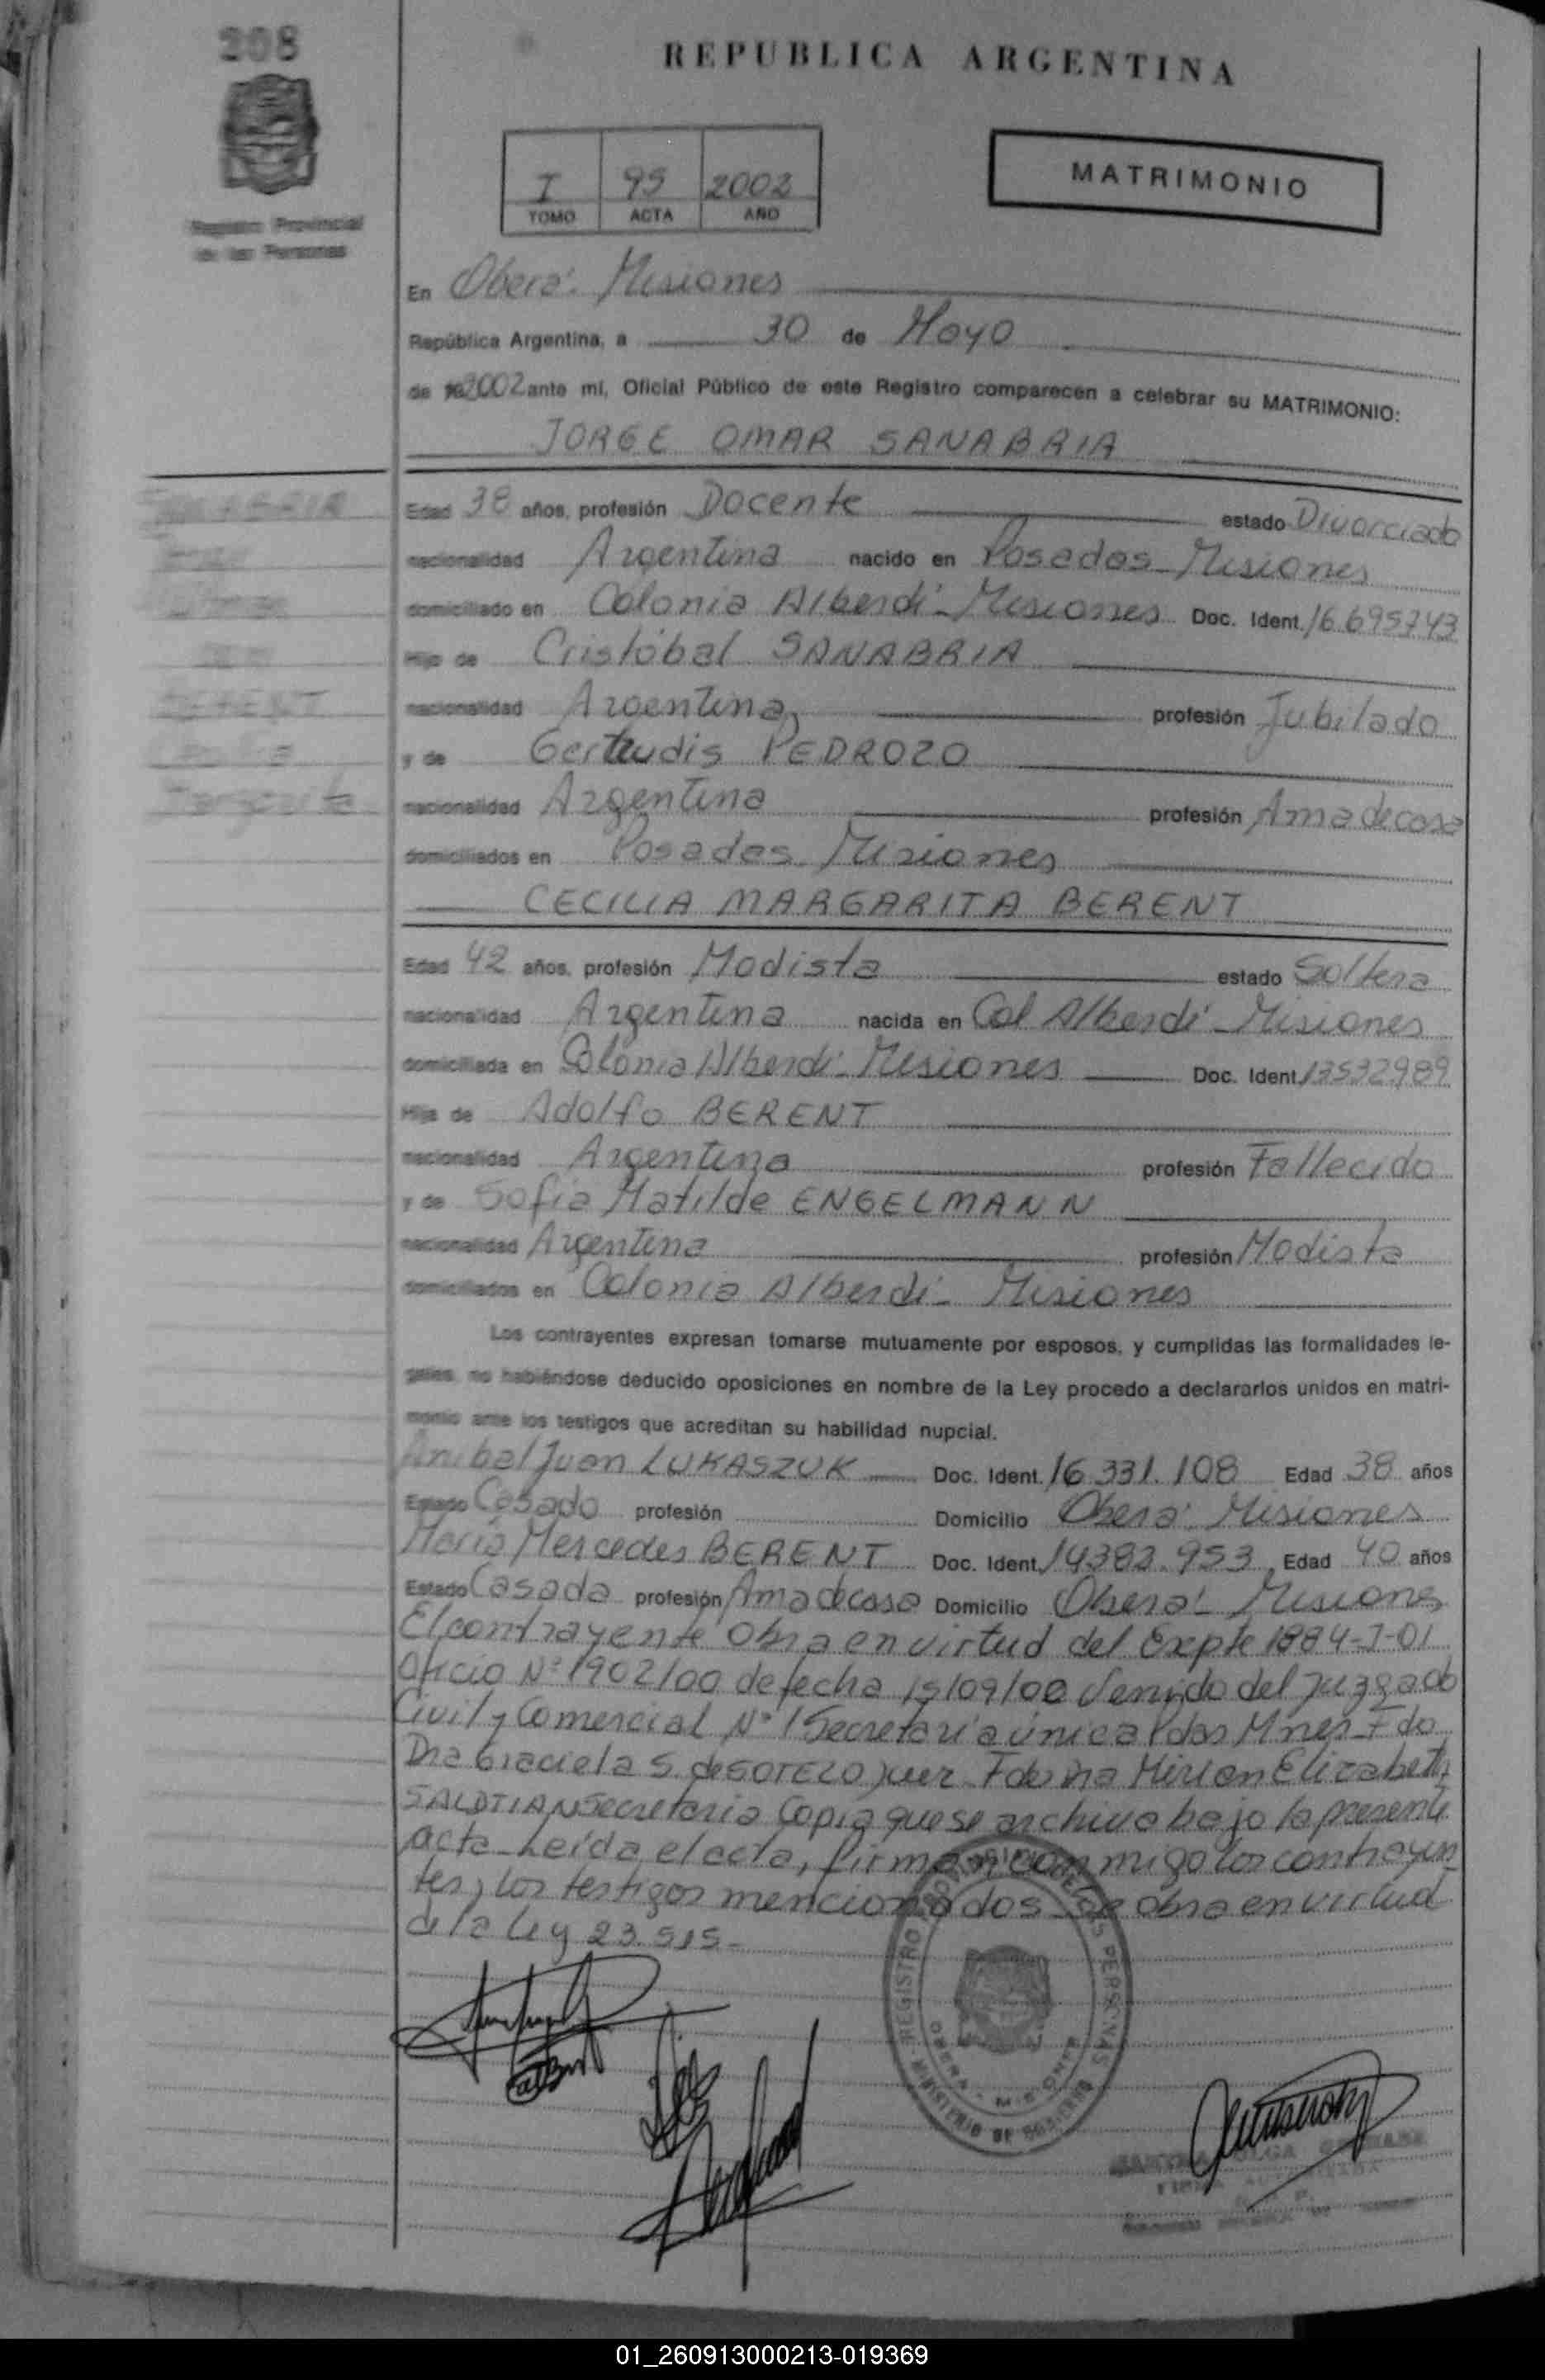 208
REPUBLICA ARGENTINA
Registro Provincial
de las Personas
I 95 2002
TOMO ACTA AÑO
MATRIMONIO
En Oberá. Misiones
República Argentina, a 30 de Mayo
de 2002 ante mí, Oficial Público de este Registro comparecen a celebrar su MATRIMONIO:
JORGE OMAR SANABRIA
SANABRIA
Jorge
Omar
con
BERENT
Cecilia
Margarita
Edad 38 años, profesión Docente estado Divorciado
nacionalidad Argentina nacido en Posadas - Misiones
domiciliado en Colonia Alberdi - Misiones Doc. Ident. 16.695743
Hijo de Cristóbal SANABRIA
nacionalidad Argentina profesión Jubilado
y de Gertrudis PEDROZO
nacionalidad Argentina profesión Ama de casa
domiciliados en Posadas Misiones
CECILIA MARGARITA BERENT
Edad 42 años, profesión Modista estado Soltera
nacionalidad Argentina nacida en Col Alberdi - Misiones
domiciliada en Colonia Alberdi - Misiones Doc. Ident. 13532989
Hija de Adolfo BERENT
nacionalidad Argentina profesión Fallecido
y de Sofia Matilde ENGELMANN
nacionalidad Argentina profesión Modista
domiciliados en Colonia Alberdi - Misiones
Los contrayentes expresan tomarse mutuamente por esposos, y cumplidas las formalidades le-
gales, no habiéndose deducido oposiciones en nombre de la Ley procedo a declararlos unidos en matri-
monio ante los testigos que acreditan su habilidad nupcial.
Anibal Juan LUKASZUK Doc. Ident. 16.331.108 Edad 38 años
Estado Casado profesión Domicilio Oberá Misiones
María Mercedes BERENT Doc. Ident. 14382.953 Edad 40 años
Estado Casada profesión Ama de casa Domicilio Oberá - Misiones
El contrayente obra en virtud del Expte 1884-J-01
Oficio Nº 1902/00 de fecha 15/09/00 venido del Juzgado
Civil y Comercial Nº 1 Secretaría única Pdas Mnes - Fdo
Dra Graciela S. de SOTELO Juez - Fdo Dra Mirian Elizabeth
Secretaria Copia que se archiva bajo la presente
acta - Leída el acta, firman conmigo los contrayen
tes, los testigos mencionados - Se obra en virtud
de la Ley 23.515 -
REGISTRO PROVINCIAL DE LAS PERSONAS
OBERA - MISIONES
MINISTERIO DE GOBIERNO
OLGA
01_260913000213-019369